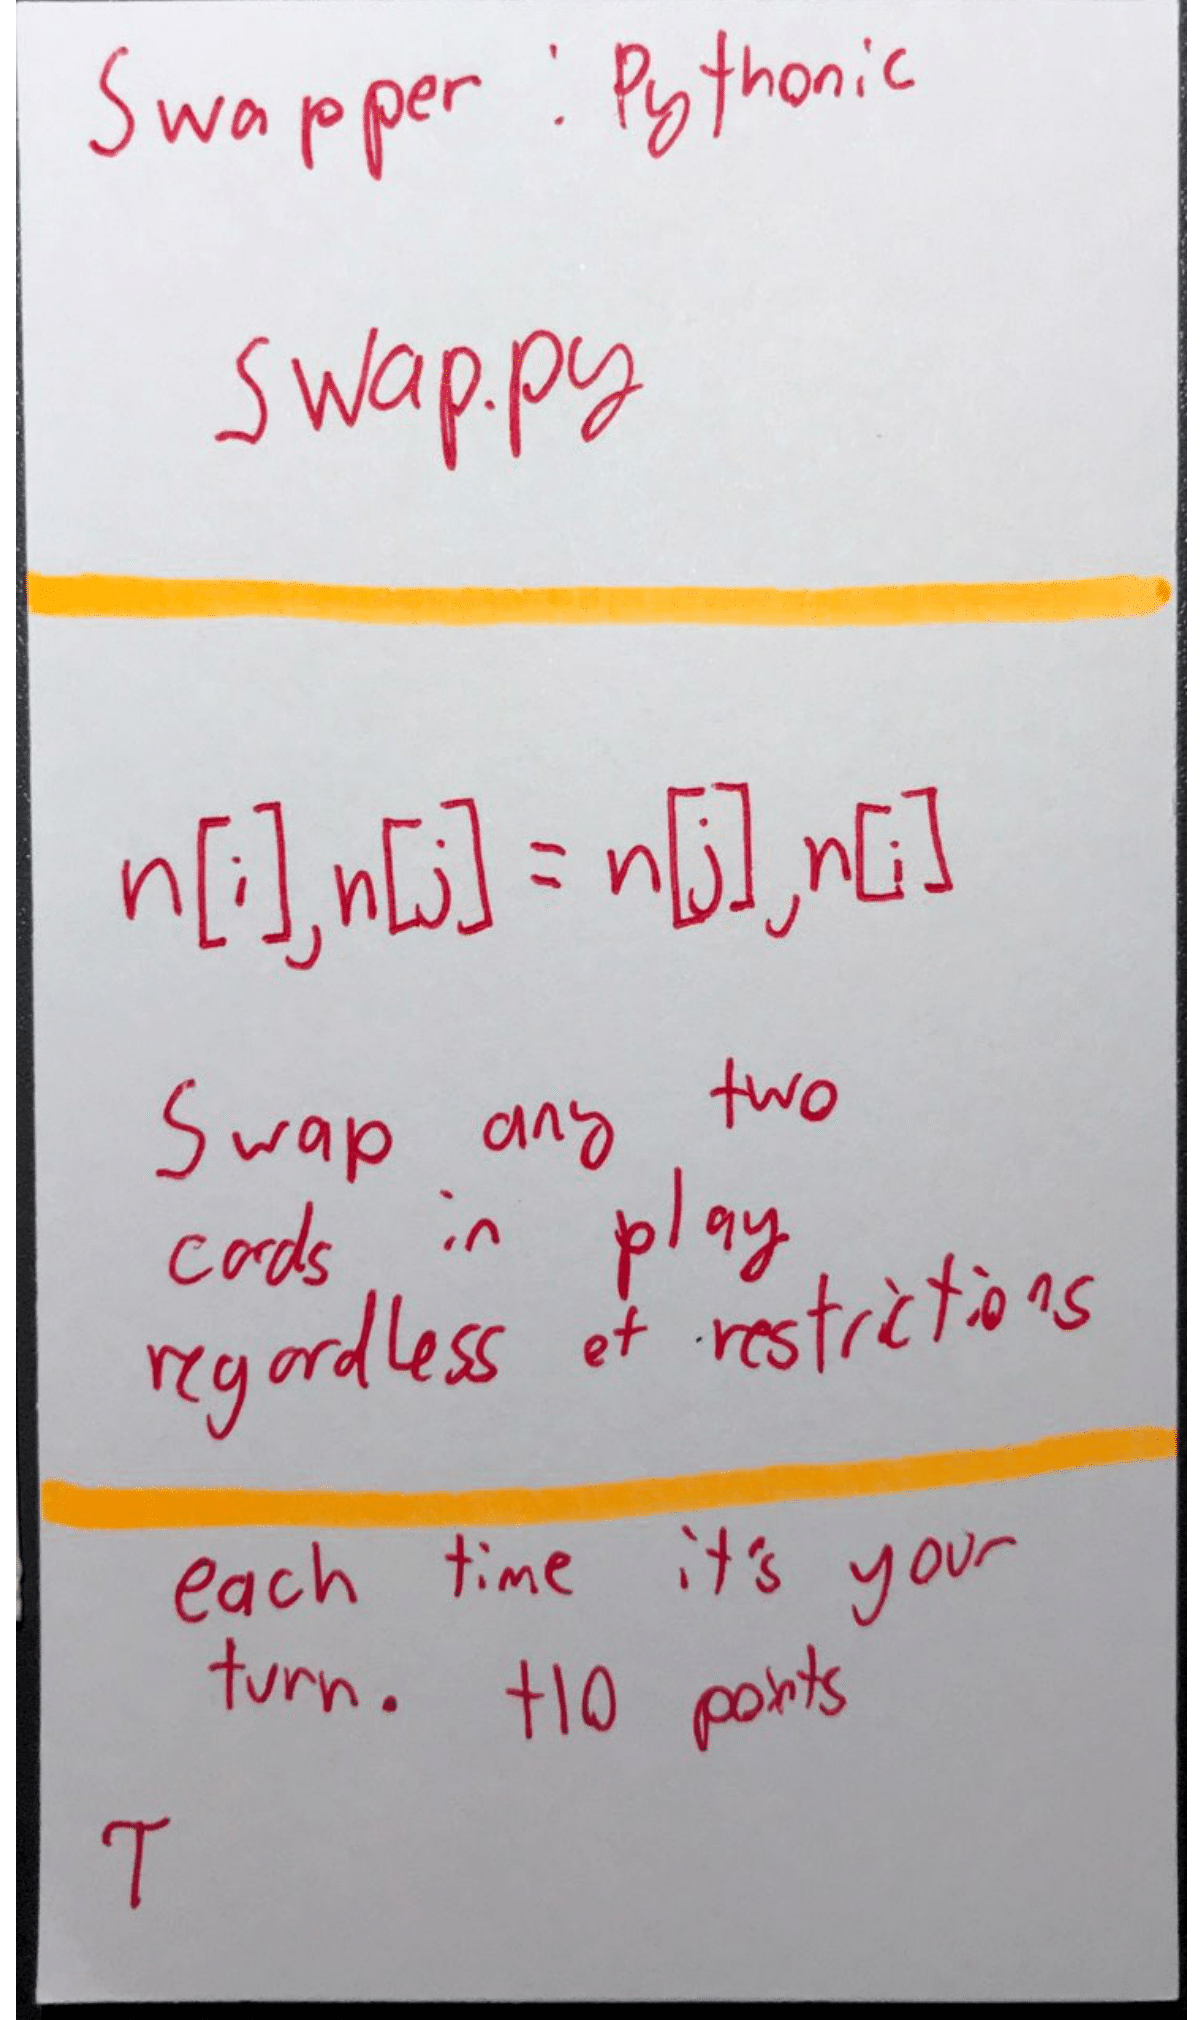 Swapper : Pythonic
swap.py
n[i],n[j] = n[j],n[i]
Swap any two
cards in play
regardless of restrictions
each time it's your
turn. +10 points
T